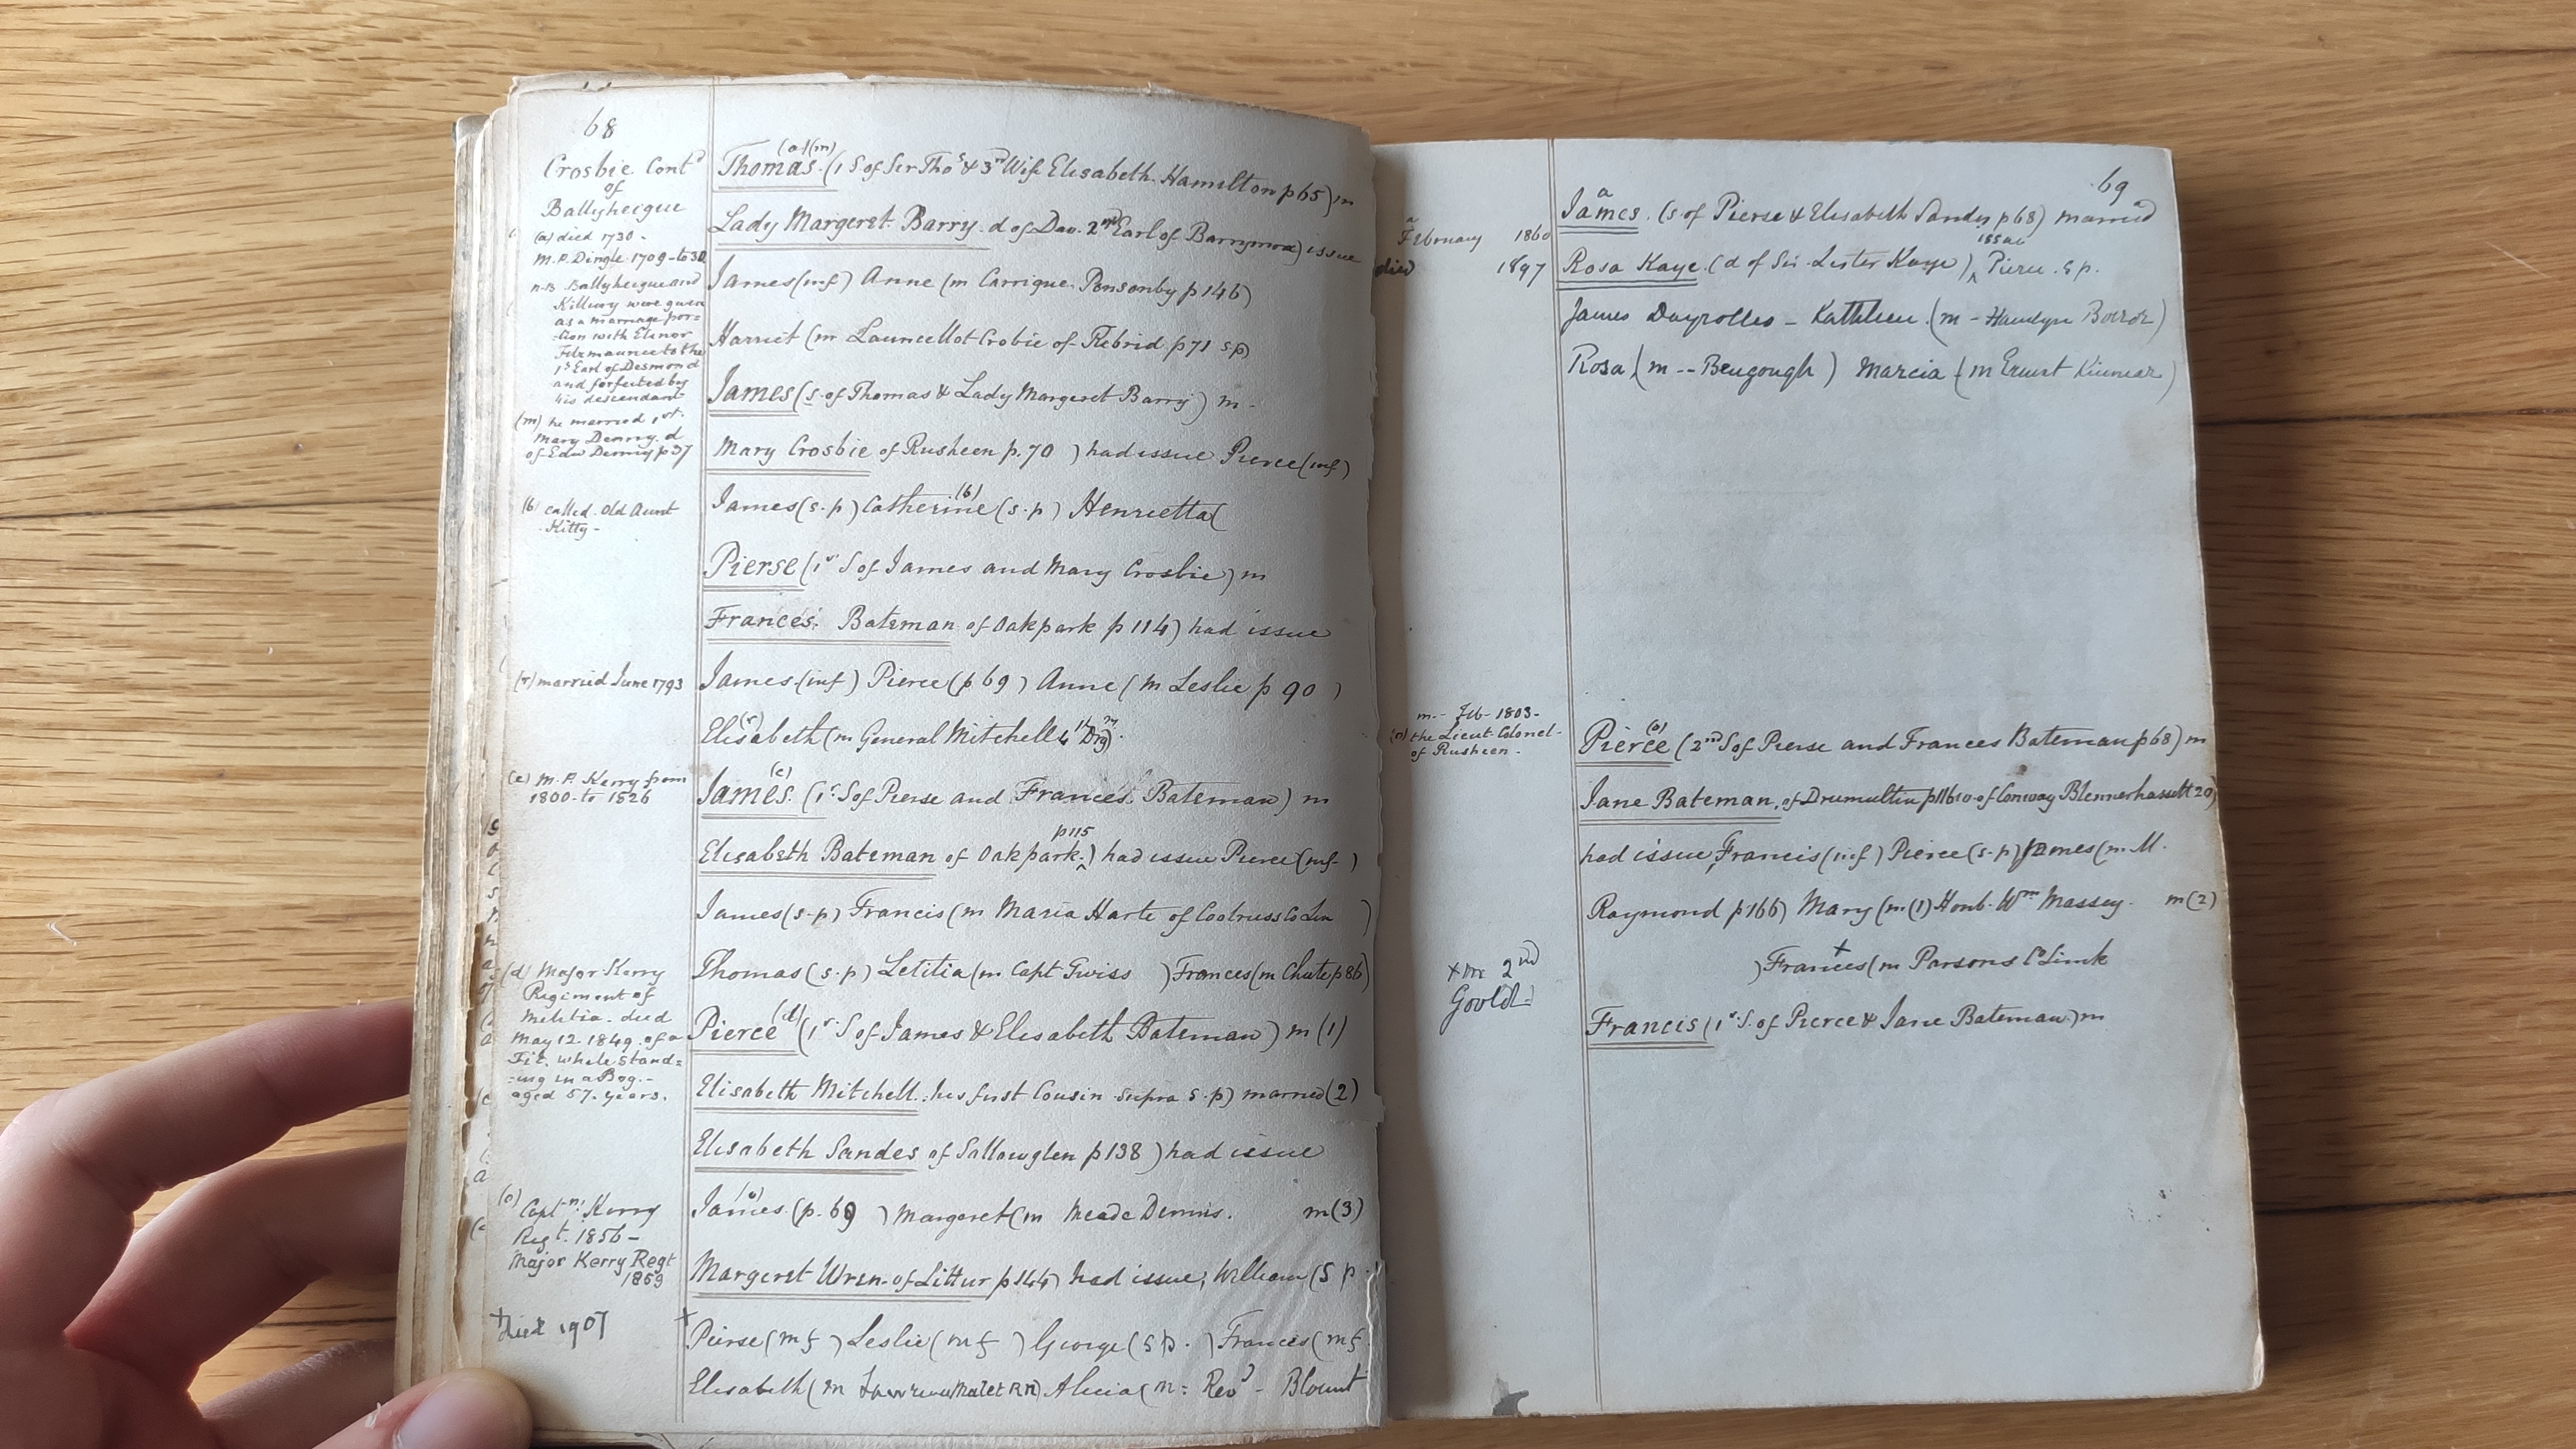 68
Crosbie Contd
of
Ballyheigue
(a) died 1730 -
M.P. Dingle 1709-to 30
n.B Ballyheigue and
Killury were given
as a marriage por=
-tion with Elinor
Fitzmaurice to the
1st Earl of Desmond
and forfeited by
his descendant
(m) he married 1st.
Mary Denny. d
of Edw Denny p37
(b) called. Old Aunt
Kitty -
(r) married June 1793
(c) M.P. Kerry from
1800-to 1826
(d) Major Kerry
Regiment of
Militia. died
May 12 1849. of a
Fit. while stand=
=ing in a Bog. -
aged 57. years.
(o) Captn. Kerry
Regt. 1856 -
Major Kerry Regt
1869
+died 1907
(a)(m)
Thomas. (1 S of Sir Thos & 3rd Wife Elisabeth. Hamilton p65) m
Lady Margeret. Barry. d of Dav. 2nd Earl of Barrymore) issue
James (inf) Anne (m Carrique. Ponsonby p146)
Harriet (m Launcellot Crobie of Tubrid p71 sp)
James (s. of Thomas & Lady Margeret Barry) m -
Mary Crosbie of Rusheen p. 70 ) had issue Pierce (inf)
James (s.p) Catherine (b) (s.p) Henrietta (
Pierse (1r S of James and Mary Crosbie) m
Frances. Bateman of Oakpark p 114) had issue
James (inf) Pierce (p 69 ) Anne (m Leslie p 90 )
Elisabeth (r) (m General Mitchell
James. (c) (1r. S of Pierse and Frances. Bateman) m
Elisabeth Bateman of Oakpark. p115 ) had issue Pierce (inf- )
James (s-p) Francis (m Maria Harte of Coolruss Co Lim )
Thomas (s.p) Letitia (m Capt Twiss ) Frances (m Chute p 86)
Pierce (d) (1r. S of James & Elisabeth Bateman) m (1)
Elisabeth Mitchell. his first Cousin supra s.p) married (2)
Elisabeth Sandes of Sallowglen p 138 ) had issue
James. (o) (p. 69 ) Margeret (m Meade Dennis. m (3)
Margeret Wren-of Littur p 144) had issue; William (S p.
+ Peirse (inf ) Leslie (inf ) George (s p. ) Frances (inf
Elisabeth (m Malet RN) Alicia (m: Revd - Blount
69
a
February 1860
died 1897
James. a (s. of Pierse & Elisabeth Sandes p 68) married
Rosa Kaye. (d of Sir Lister Kaye) issue Pierce. s p.
James Dayrolles - Kathleen. (m - Hamlyn Borrer)
Rosa (m -- Bengough ) Marcia (m Ernest Kinnear)
m -- Feb - 1803 -
(o) the Lieut-Colonel -
of Rusheen -
Pierce (o) (2nd S of Pierse and Frances Bateman p 68) m
Jane Bateman, of Drumultin p116 of Conway Blennerhassett 20)
had issue, Francis (inf) Pierce (s-p) James (m. M.
Raymond p166) Mary (m. (1) Honb. Wm Massey. m (2)
) Frances + (m Parsons Co Limk
+ m 2nd
Goold-
Francis (1r. S. of Pierce & Jane Bateman) m